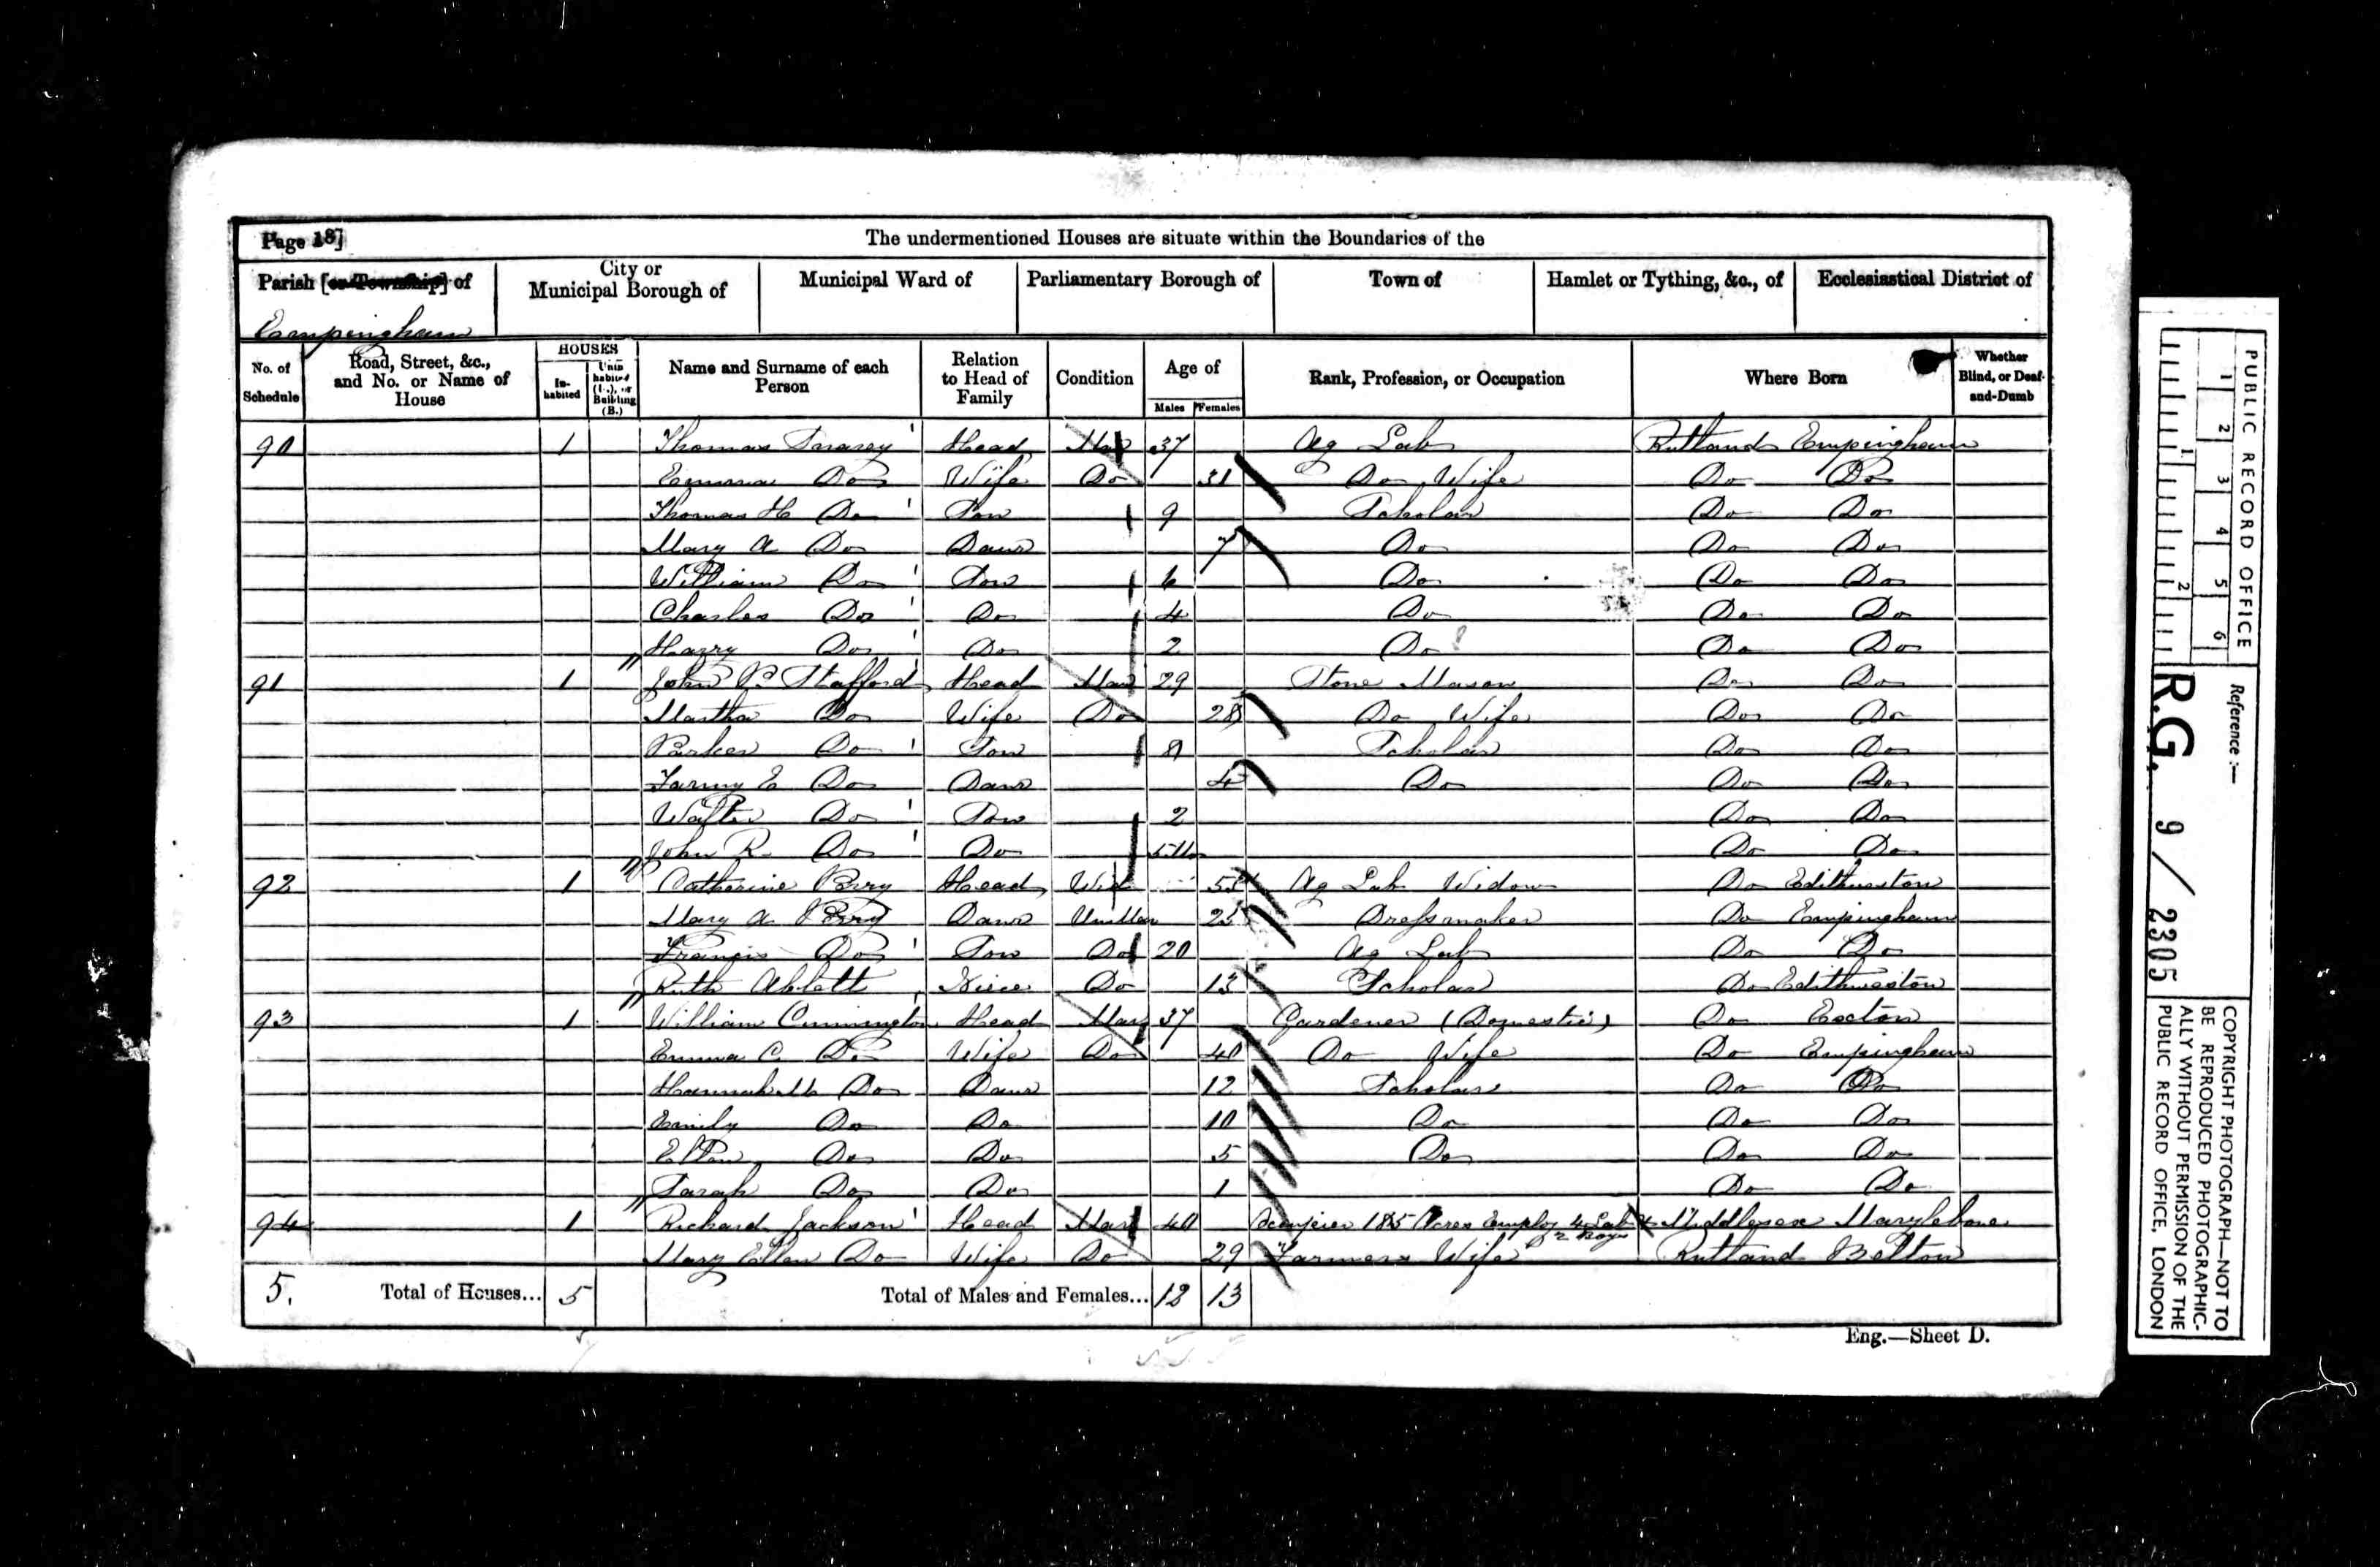 Page 18]
The undermentioned Houses are situate within the Boundaries of the
Parish [or Township] of
City or Municipal Borough of
Municipal Ward of
Parliamentary Borough of
Town of
Hamlet or Tything, &c., of
Ecclesiastical District of
Empingham
No. of Schedule
Road, Street, &c., and No. or Name of House
HOUSES
Inhabited
Uninhabited (U.), or Building (B.)
Name and Surname of each Person
Relation to Head of Family
Condition
Age of
Males
Females
Rank, Profession, or Occupation
Where Born
Whether Blind, or Deaf-and-Dumb
90 1 Thomas Head Mar 37 Ag Lab Rutland Empingham
Emma Do Wife Do 31 Do Wife Do Do
Thomas H Do Son 9 Scholar Do Do
Mary A Do Daur 7 Do Do Do
William Do Son 6 Do Do Do
Charles Do Do 4 Do Do Do
Harry Do Do 2 Do Do Do
91 1 John P. Stafford Head Mar 29 Stone Mason Do Do
Martha Do Wife Do 28 Do Wife Do Do
Parker Do Son 8 Scholar Do Do
Fanny E Do Daur 4 Do Do Do
Walter Do Son 2 Do Do
John R Do Do Do Do
92 1 Catherine Perry Head Wid Ag Lab Widow Do Edithweston
Mary A Perry Daur UnMar 25 Dressmaker Do Empingham
Francis Do Son Do 20 Ag Lab Do Do
Ruth Ablett Niece Do 13 Scholar Do Edithweston
93 1 William Cunnington Head Mar 37 Gardener (Domestic) Do Exton
Emma C. Do Wife Do 40 Do Wife Do Empingham
Hannah M Do Daur 12 Scholar Do Do
Emily Do Do 10 Do Do Do
Ellen Do Do 5 Do Do Do
Sarah Do Do 1 Do Do
94 1 Richard Jackson Head Mar 40 Occupier 185 Acres Employ 4 Lab & 2 Boys Middlesex Marylebone
Mary Ellen Do Wife Do 29 Farmers Wife Rutland Belton
5. Total of Houses... 5 Total of Males and Females... 12 13
Eng.—Sheet D.
PUBLIC RECORD OFFICE
1 2 3 4 5 6
1 2
Reference :—
R.G. 9 / 2305
COPYRIGHT PHOTOGRAPH—NOT TO
BE REPRODUCED PHOTOGRAPHIC-
ALLY WITHOUT PERMISSION OF THE
PUBLIC RECORD OFFICE, LONDON